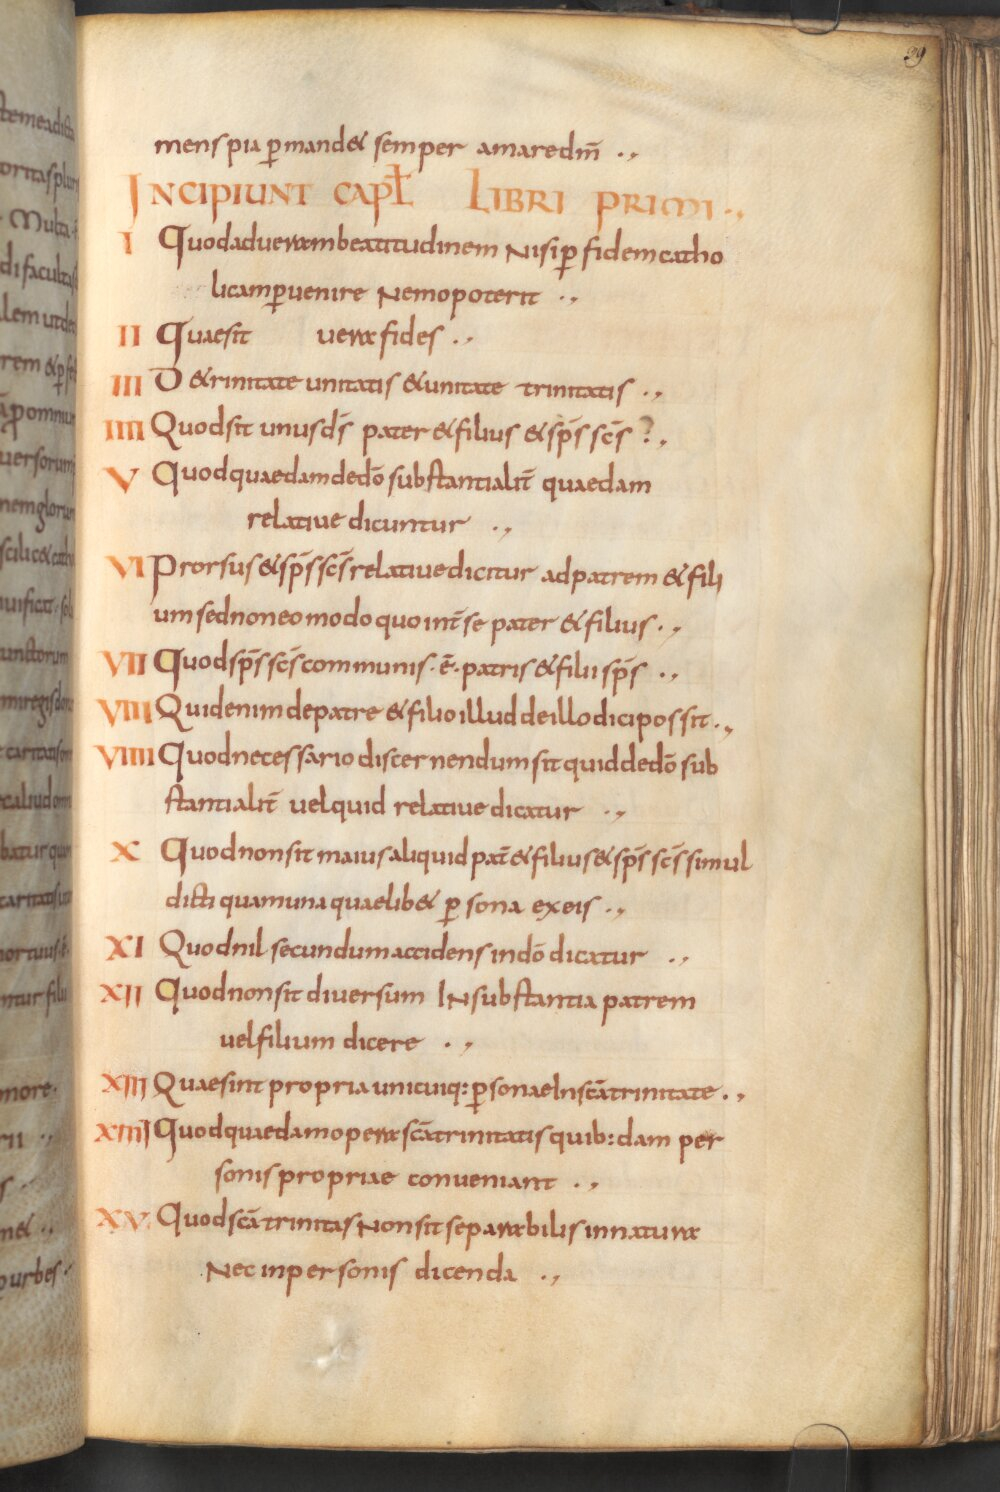 39
mens pia p̲ mand& semper amare dm̄ .,
INCIPIUNT CAPŁ LIBRI PRIMI .,
I Quod ad ueram beatitudinem Nisi p̲ fidem catho
licam p̲uenire Nemo poterit .,
II Quae sit uera fides .,
III D& rinitate unitatis & unitate trinitatis .,
IIII Quod sit unus d̄s pater & filius & sp̄s sc̄s ? .,
V Quod quaedam de dō substantialit̄ quaedam
relatiue dicuntur .,
VI Prorsus & sp̄s sc̄s relatiue dicitur ad patrem & fili
um sed non eo modo quo int̄ se pater & filius .,
VII Quod sp̄s sc̄s communis · ē · patris & filii sp̄s .,
VIII Quid enim de patre & filio illud de illo dici possit .,
VIIII Quod necessario discernendum sit quid de dō sub
stantialit̄ uel quid relatiue dicatur .,
X Quod non sit maius aliquid pat̄ & filius & sp̄s sc̄s simul
dicti quam una quaelib& p̲sona ex eis .,
XI Quod nil secundum accidens in dō dicatur .,
XII Quod non sit diuersum IN substantia patrem
uel filium dicere .,
XIII Quae sint propria unicuiq: p̲sonae In scā trinitate .,
XIIII Quod quaedam opera scā trinitatis quib: dam per
sonis propriae conueniant .,
XV. Quod scā trinitas Non sit separabilis in natura
Nec in personis dicenda .,